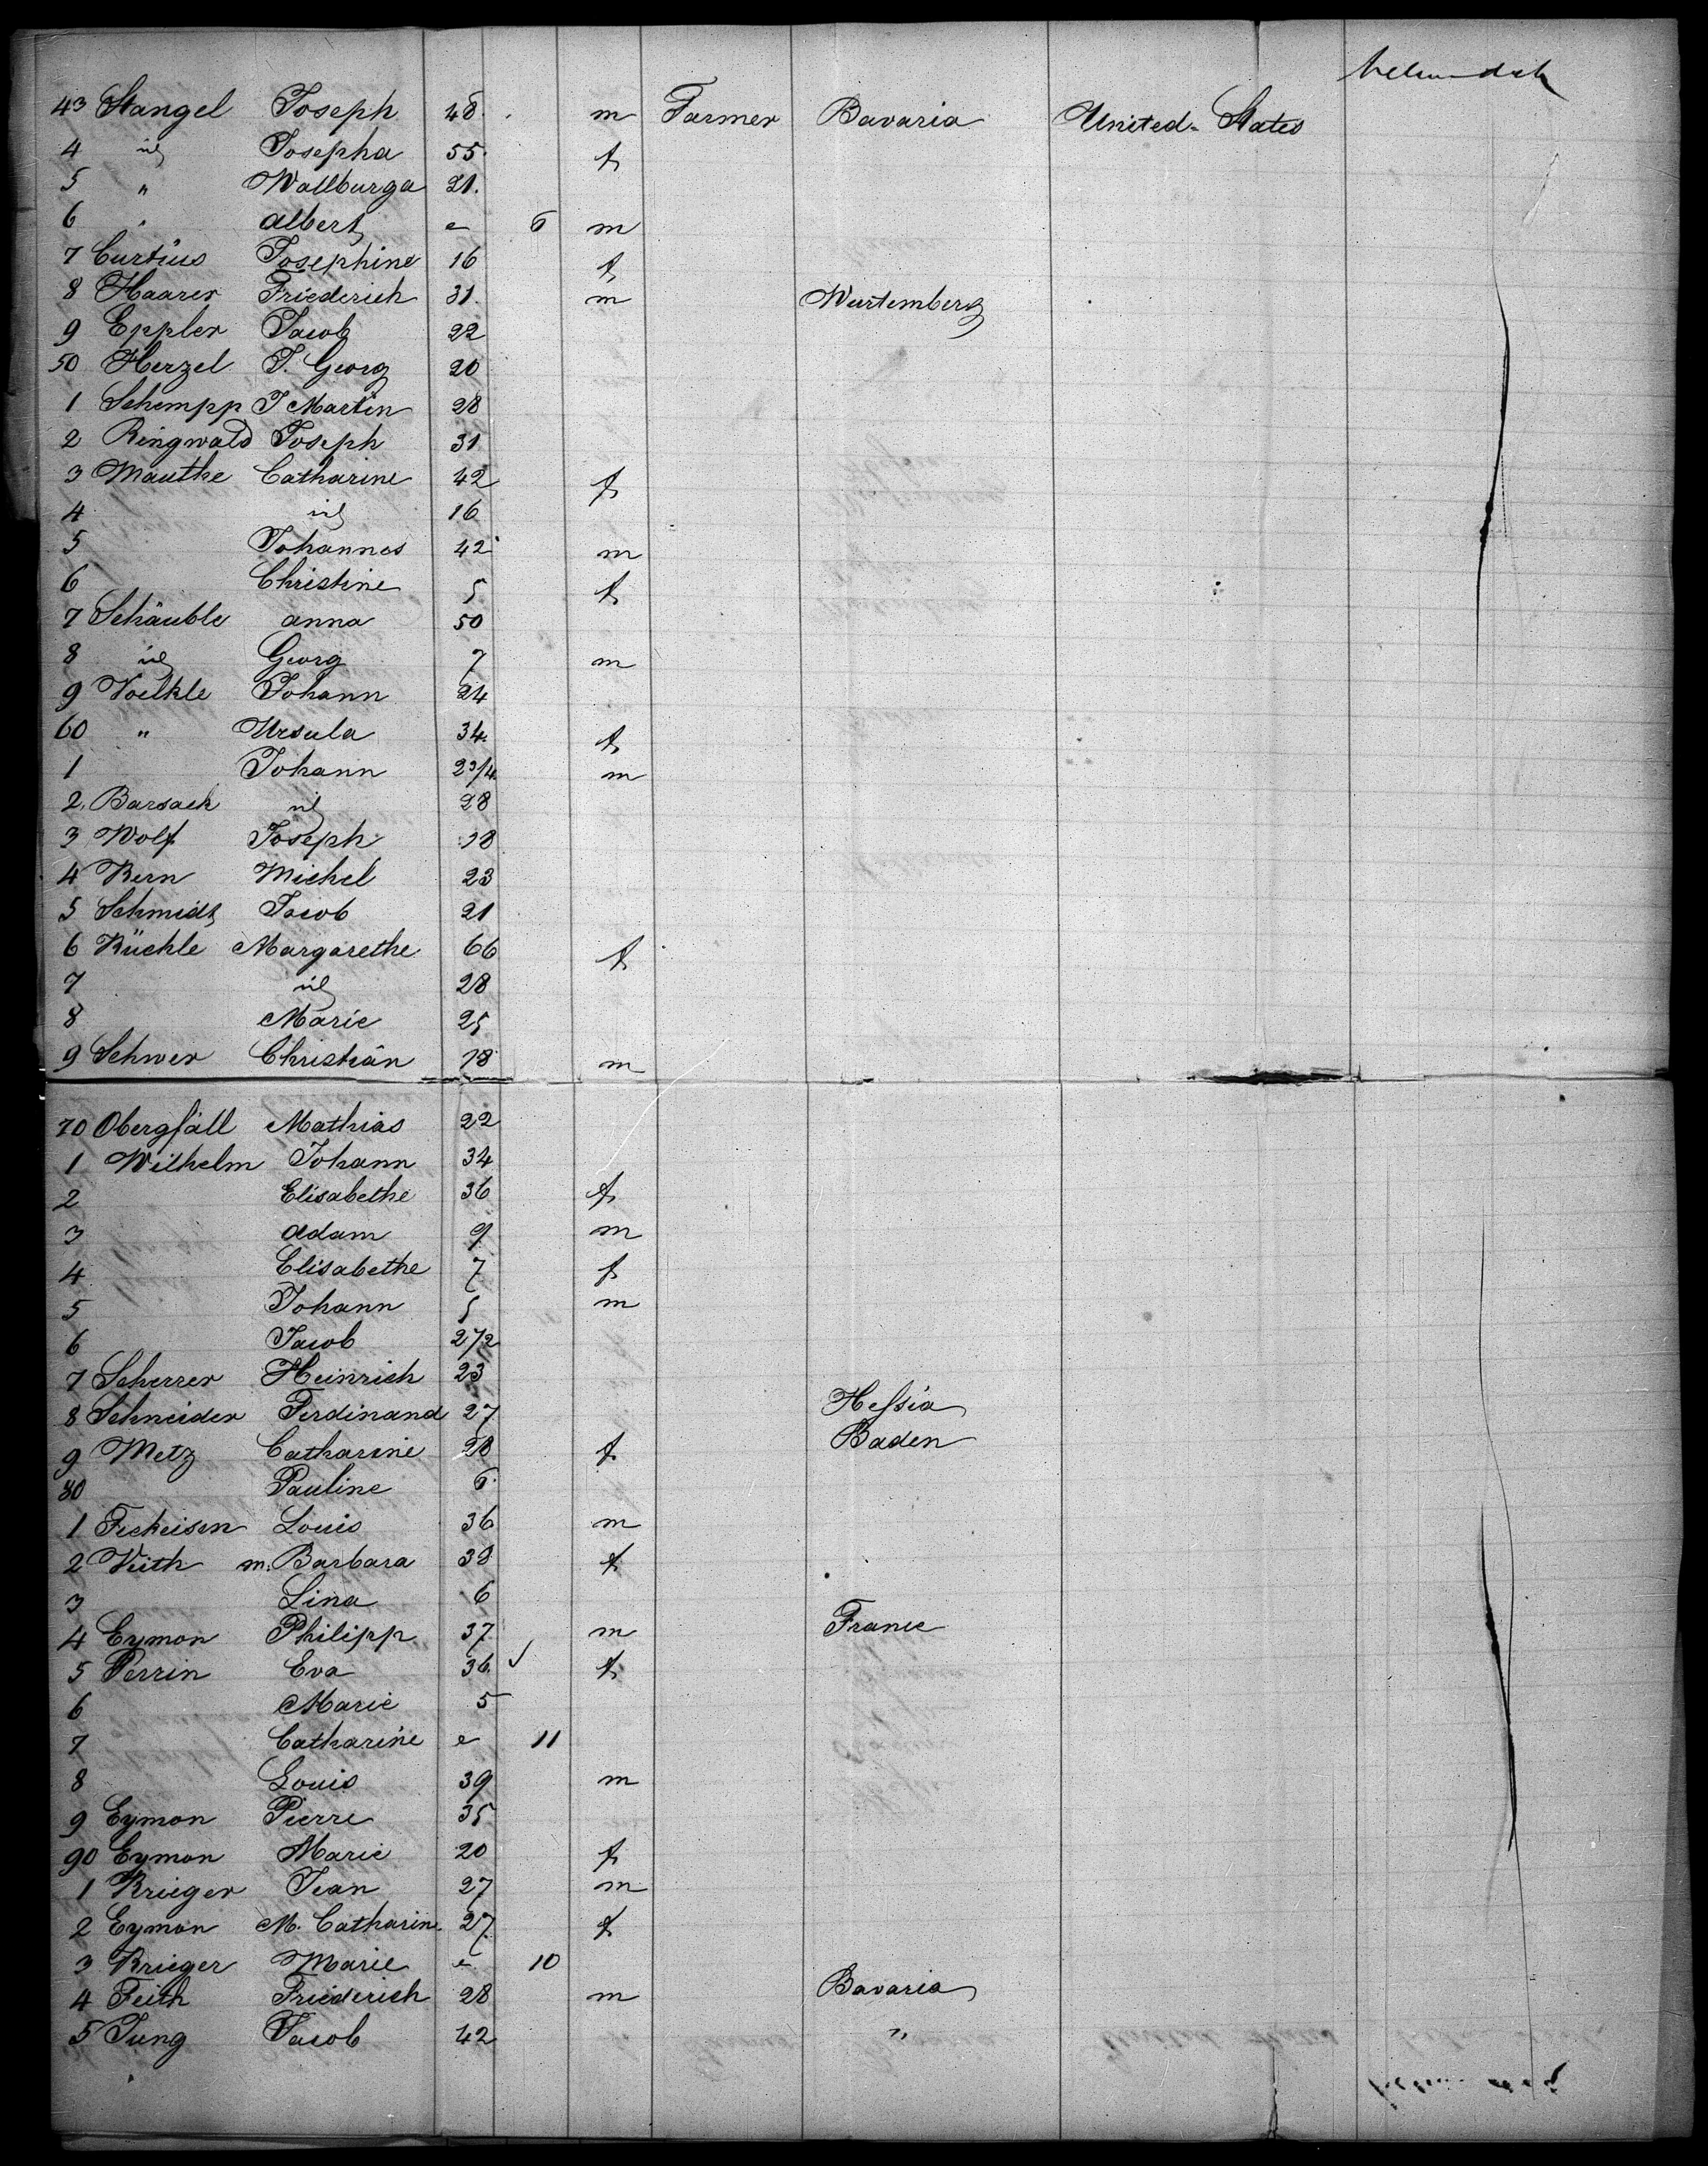 between deck
43 Stangel Joseph 48 m Farmer Bavaria United States
4 id Josepha 55 f
5 " Wallburga 21.
6 " Albert 6 m
7 Curtius Josephine 16 f
8 Haarer Friederich 31. m Wurtemberg
9 Eppler Jacob 22
50 Herzel J. Georg 20
1 Schempp J Martin 28
2 Ringwald Joseph 31
3 Mauthe Catharine 42 f
4 id 16
5 Johannes 42 m
6 Christine 5 f
7 Schäuble Anna 50
8 id Georg 7 m
9 Voelkle Johann 24
60 " Ursula 34 f
1 Johann 2 3/4 m
2 Barsach id 28
3 Wolf Joseph 18
4 Kern Michel 23
5 Schmidt Jacob 21
6 Küchle Margarethe 66 f
7 id 28
8 Marie 25
9 Schwer Christian 18 m
70 Obergfäll Mathias 22
1 Wilhelm Johann 34
2 Elisabethe 36 f
3 Adam 9 m
4 Elisabethe 7 f
5 Johann 5 m
6 Jacob 2 1/2
7 Scherrer Heinrich 23
8 Schneider Ferdinand 27 Hessia
9 Metz Catharine 28 f Baden
80 Pauline 6
1 Feckeisen Louis 36 m
2 Veith m. Barbara 38 f
3 Lina 6
4 Eymon Philipp 37 m France
5 Perrin Eva 36 f
6 Marie 5
7 Catharine 11
8 Louis 39 m
9 Eymon Pierre 35
90 Eymon Marie 20 f
1 Krieger Jean 27 m
2 Eymon M. Catharin. 27 f
3 Krieger Marie 10
4 Feith Friederich 28 m Bavaria
5 Jung Jacob 42 "